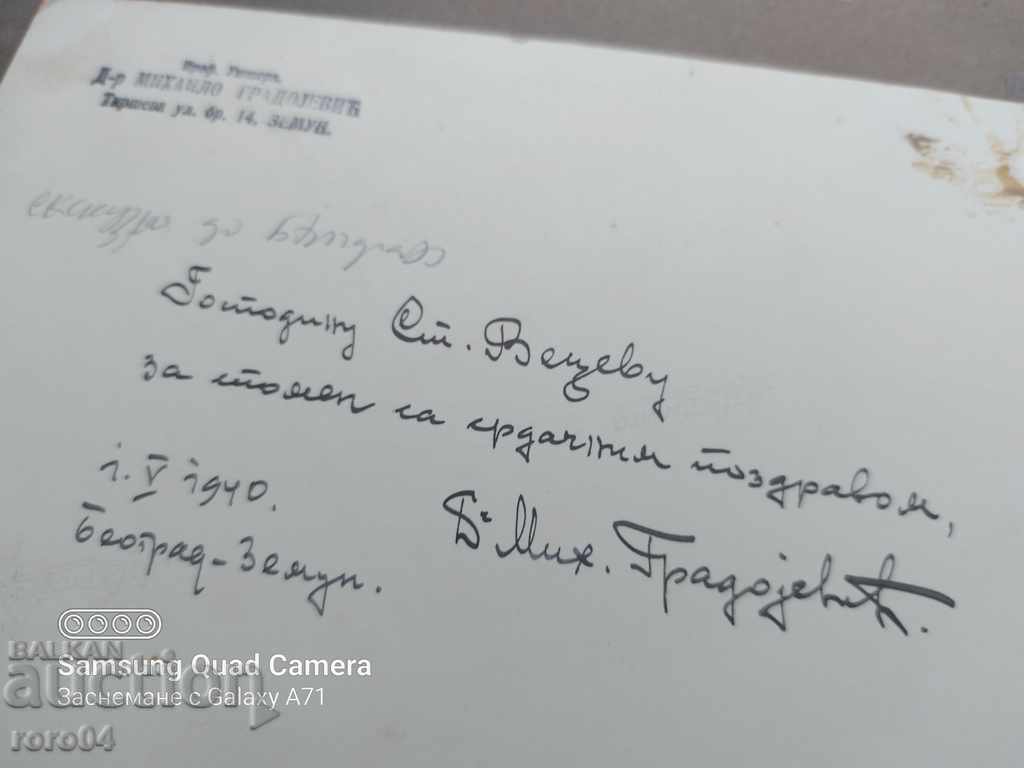 Проф. Универз.
Д-р МИХАИЛО ГРАДОЈЕВИЋ
ул. бр. 14, ЗЕМУН.
Господину Ст. Вецеву
за спомен са срдачним поздравом,
1. V 1940.
Београд-Земун.
Др Мих. Градојевић.
BALKAN
auction
roro04
Samsung Quad Camera
Заснемане с Galaxy A71